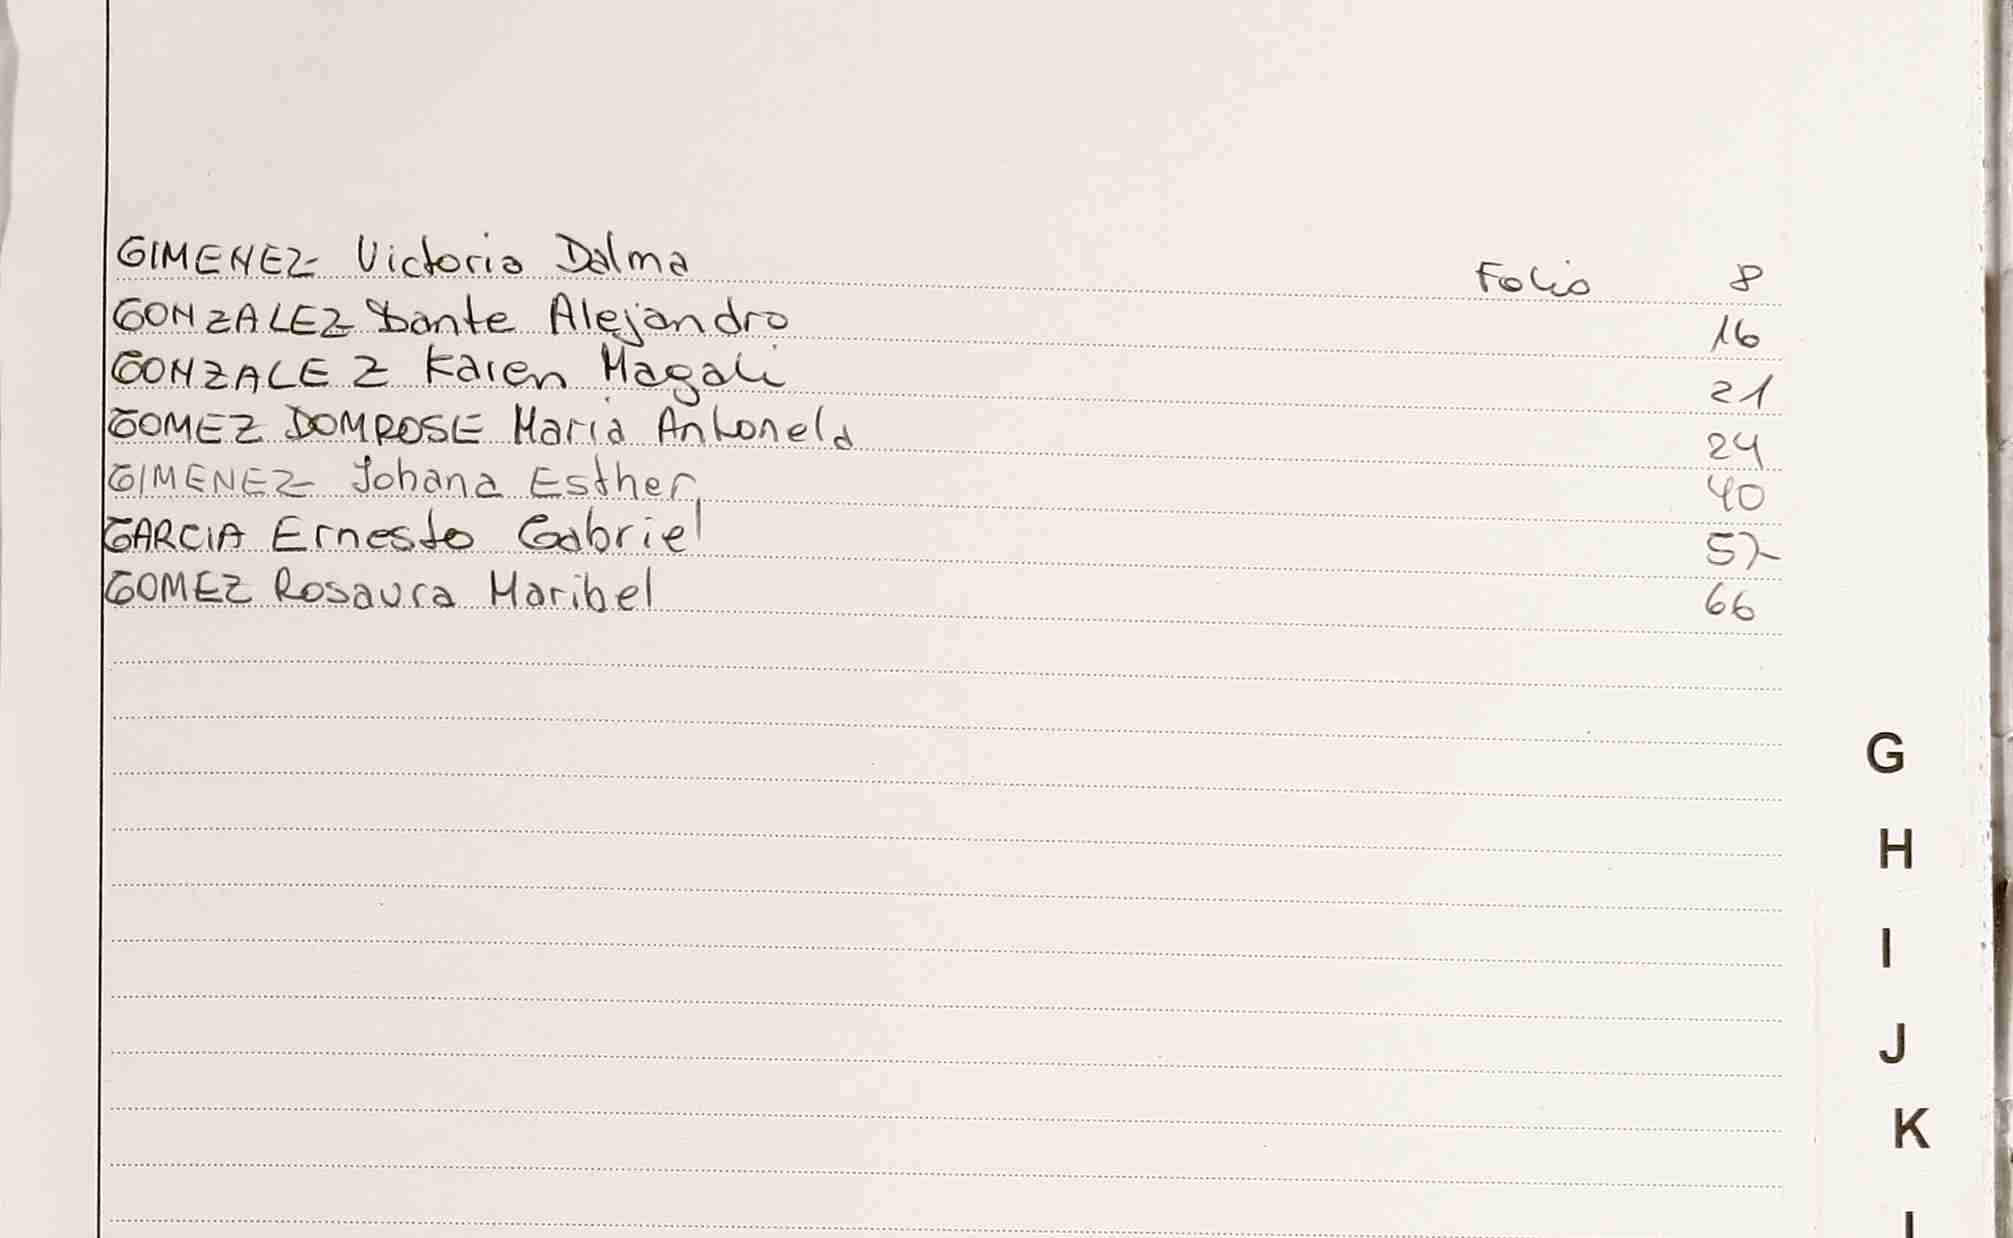 GIMENEZ Victoria Dalma Folio 8
GONZALEZ Dante Alejandro 16
GONZALEZ Karen Magali 21
GOMEZ DOMROSE Maria Antonela 24
GIMENEZ Johana Esther 40
GARCIA Ernesto Gabriel 57
GOMEZ Rosaura Maribel 66
G
H
I
J
K